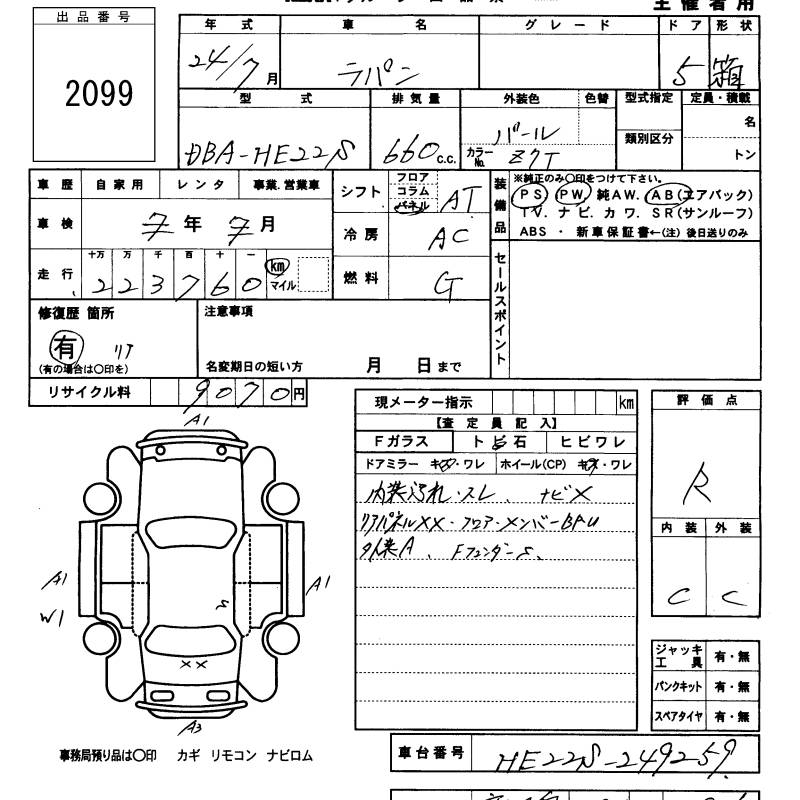 主催者用
出品番号
2099
年式 車名 グレード ドア 形状
24/7月 ラパン 5 箱
型式 排気量 外装色 色替 型式指定 定員・積載
DBA-HE22S 660c.c. パール 名
カラーNo. Z7T 類別区分 トン
車歴 自家用 レンタ 事業.営業車
車検 7年7月
走行 十万 万 千 百 十 一
223760 km マイル
シフト フロア コラム パネル AT
冷房 AC
燃料 G
装備品
※純正のみ〇印をつけて下さい。
PS PW. 純AW. AB(エアバック)
TV. ナビ. カワ. SR(サンルーフ)
ABS ・ 新車保証書←(注) 後日送りのみ
セールスポイント
修復歴 箇所
有 リア
(有の場合は〇印を)
注意事項
名変期日の短い方 月 日まで
リサイクル料 9070円
A1
A1
W1
A1
XX
A3
現メーター指示 km
【査定員記入】
Fガラス トビ石 ヒビワレ
ドアミラー キズ・ワレ ホイール(CP) キズ・ワレ
内装汚れ・スレ、ナビX
リアパネルXX・フロア・メンバーBPU
外装A、FフェンダーS、
評価点
R
内装 外装
C C
ジャッキ工具 有・無
パンクキット 有・無
スペアタイヤ 有・無
事務局預り品は〇印 カギ リモコン ナビロム
車台番号 HE22S-249259